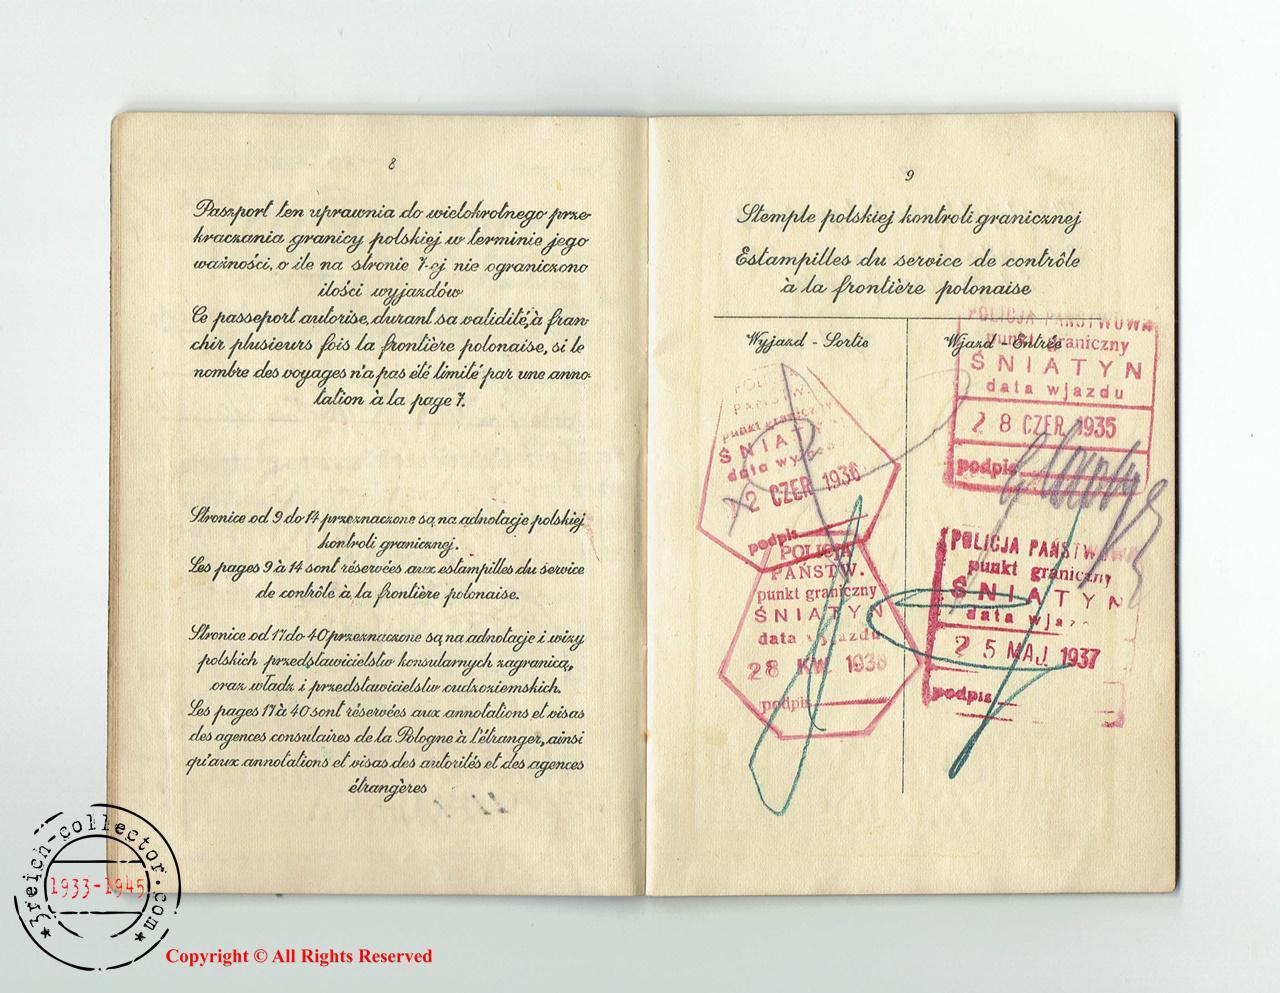 8
Paszport ten uprawnia do wielokrotnego prze-
kraczania granicy polskiej w terminie jego
ważności, o ile na stronie 7-ej nie ograniczono
ilości wyjazdów
Ce passeport autorise, durant sa validité, à fran-
chir plusieurs fois la frontière polonaise, si le
nombre des voyages n'a pas été limité par une anno-
tation à la page 7.
Stronice od 9 do 14 przeznaczone są na adnotacje polskiej
kontroli granicznej.
Les pages 9 à 14 sont réservées aux estampilles du service
de contrôle à la frontière polonaise.
Stronice od 17 do 40 przeznaczone są na adnotacje i wizy
polskich przedstawicielstw konsularnych zagranicą,
oraz władz i przedstawicielstw cudzoziemskich.
Les pages 17 à 40 sont réservées aux annotations et visas
des agences consulaires de la Pologne à l'étranger, ainsi
qu'aux annotations et visas des autorités et des agences
étrangères
9
Stemple polskiej kontroli granicznej
Estampilles du service de contrôle
à la frontière polonaise
Wyjazd - Sortie
Wjazd - Entrée
PAŃSTW.
punkt graniczny
ŚNIATYN
data
2 CZER 1936
podpis
POLICJA
PAŃSTW.
punkt graniczny
ŚNIATYN
data wyjazdu
28 KW. 1936
podpis
POLICJA PAŃSTWOWA
punkt graniczny
ŚNIATYN
data wjazdu
28 CZER 1935
podpis
POLICJA PAŃSTWOWA
punkt graniczny
ŚNIATYN
data
25 MAJ. 1937
podpis
3reich-collector.com
1933-1945
Copyright © All Rights Reserved